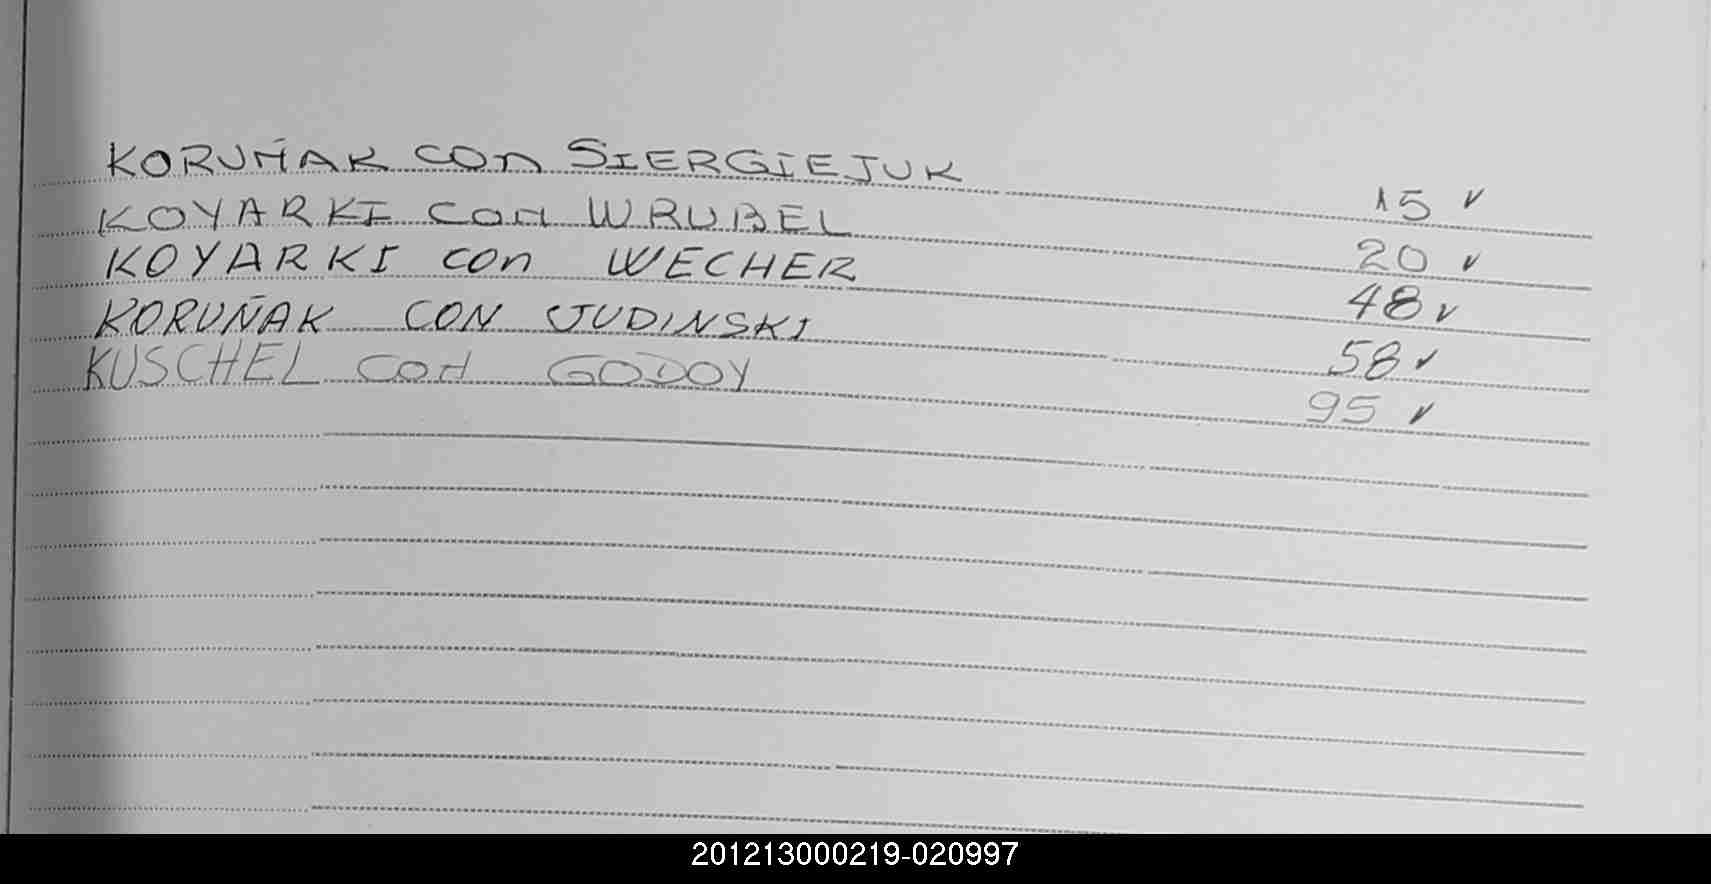 KORUÑAK con SIERGIEJUK 15 ✓
KOYARKI con WRUBEL 20 ✓
KOYARKI con WECHER 48 ✓
KORUÑAK CON JUDINSKI 58 ✓
KUSCHEL con GODOY 95 ✓
201213000219-020997